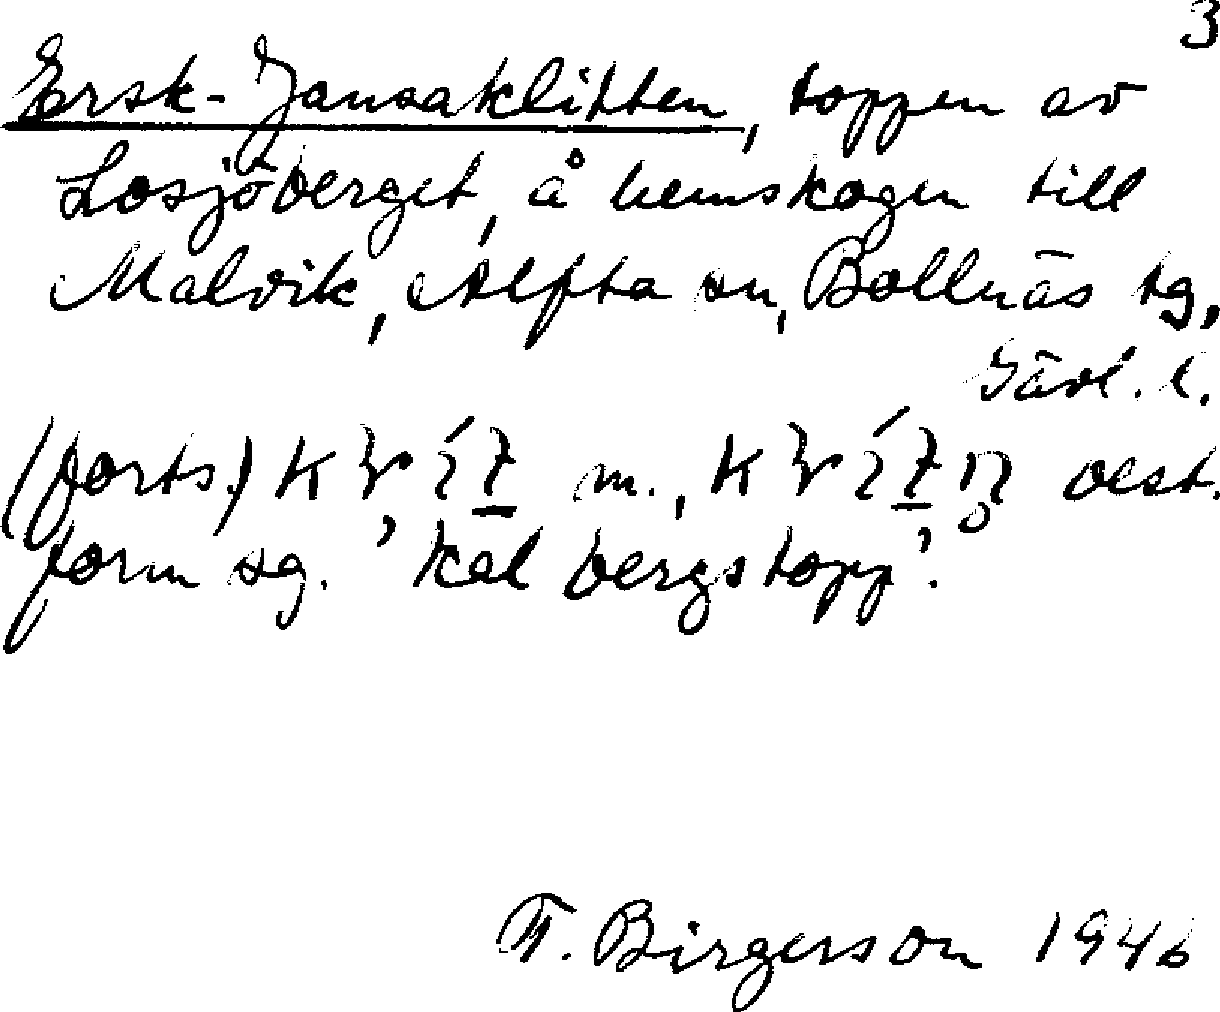 3
Ersk-Jansaklitten, toppen av
Losjöberget, å hemskogen till
Malvik, Alfta sn, Bollnäs tg,
Gävl. l.
(forts.) m., best.
form sg. 'kal bergstopp'.
T. Birgerson 1946